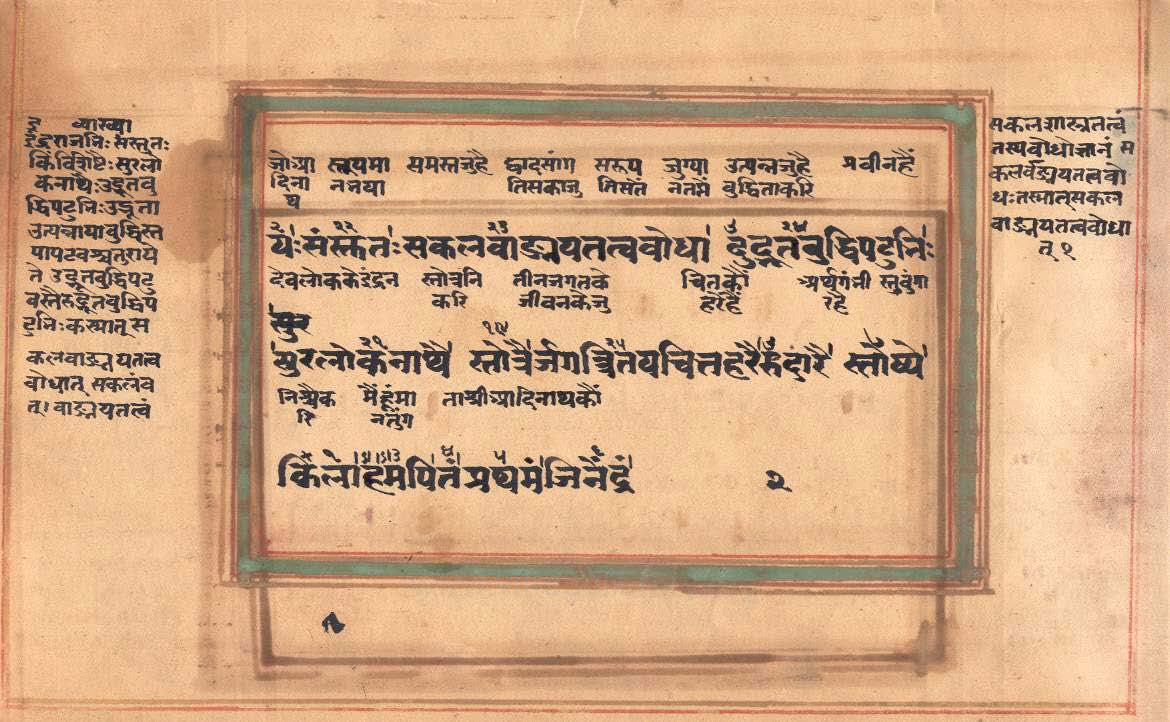 व्याख्या
इंद्रराजभिः संस्तुतः
किंविशिष्टैः सुरलो
कनाथैः उद्भूतबु
द्धिपटुभिः उद्भूता
उत्पन्ना या बुद्धिस्त
या पाटवश्चतुरा ये
ते उद्भूतबुद्धिपटु
वस्तैरुद्भूतबुद्धिप
टुभिः कस्मात् स
कलवाङ्मयतत्व
बोधात् सकलं व
त्। वाङ्मयतत्वं
जोश्रीआ स्तूयमा समस्तजुहै द्वादसांग सरूप जुग्या उत्पन्नजुहै प्रवीनहैं
दिना नभया तिसकाजु तिसतं नतमे बुद्धिताकरि
थ
यः संस्तुतः सकलवाङ्मयतत्वबोधा दुद्भूतबुद्धिपटुभिः
देवलोककेइंद्रन स्तोत्रनि तीनजगतके चितकौं अर्थगंभी स्तुवुंगा
करि जीवनकेजु हरेहैं रहै
सुर
सुरलोकनाथैः स्तोत्रैर्जगत्त्रितयचित्तहरैरुदारैः स्तोष्ये
निश्चैक मैंहूंमा ताश्रीआदिनाथकौं
रि नतुंग
किलाहमपि तं प्रथमं जिनेंद्रं २
सकलशास्त्रतत्वं
तस्य बोधो ज्ञानं स
कलवाङ्मयतत्वबो
धः तस्मात् सकल
वाङ्मयतत्वबोधा
त् २